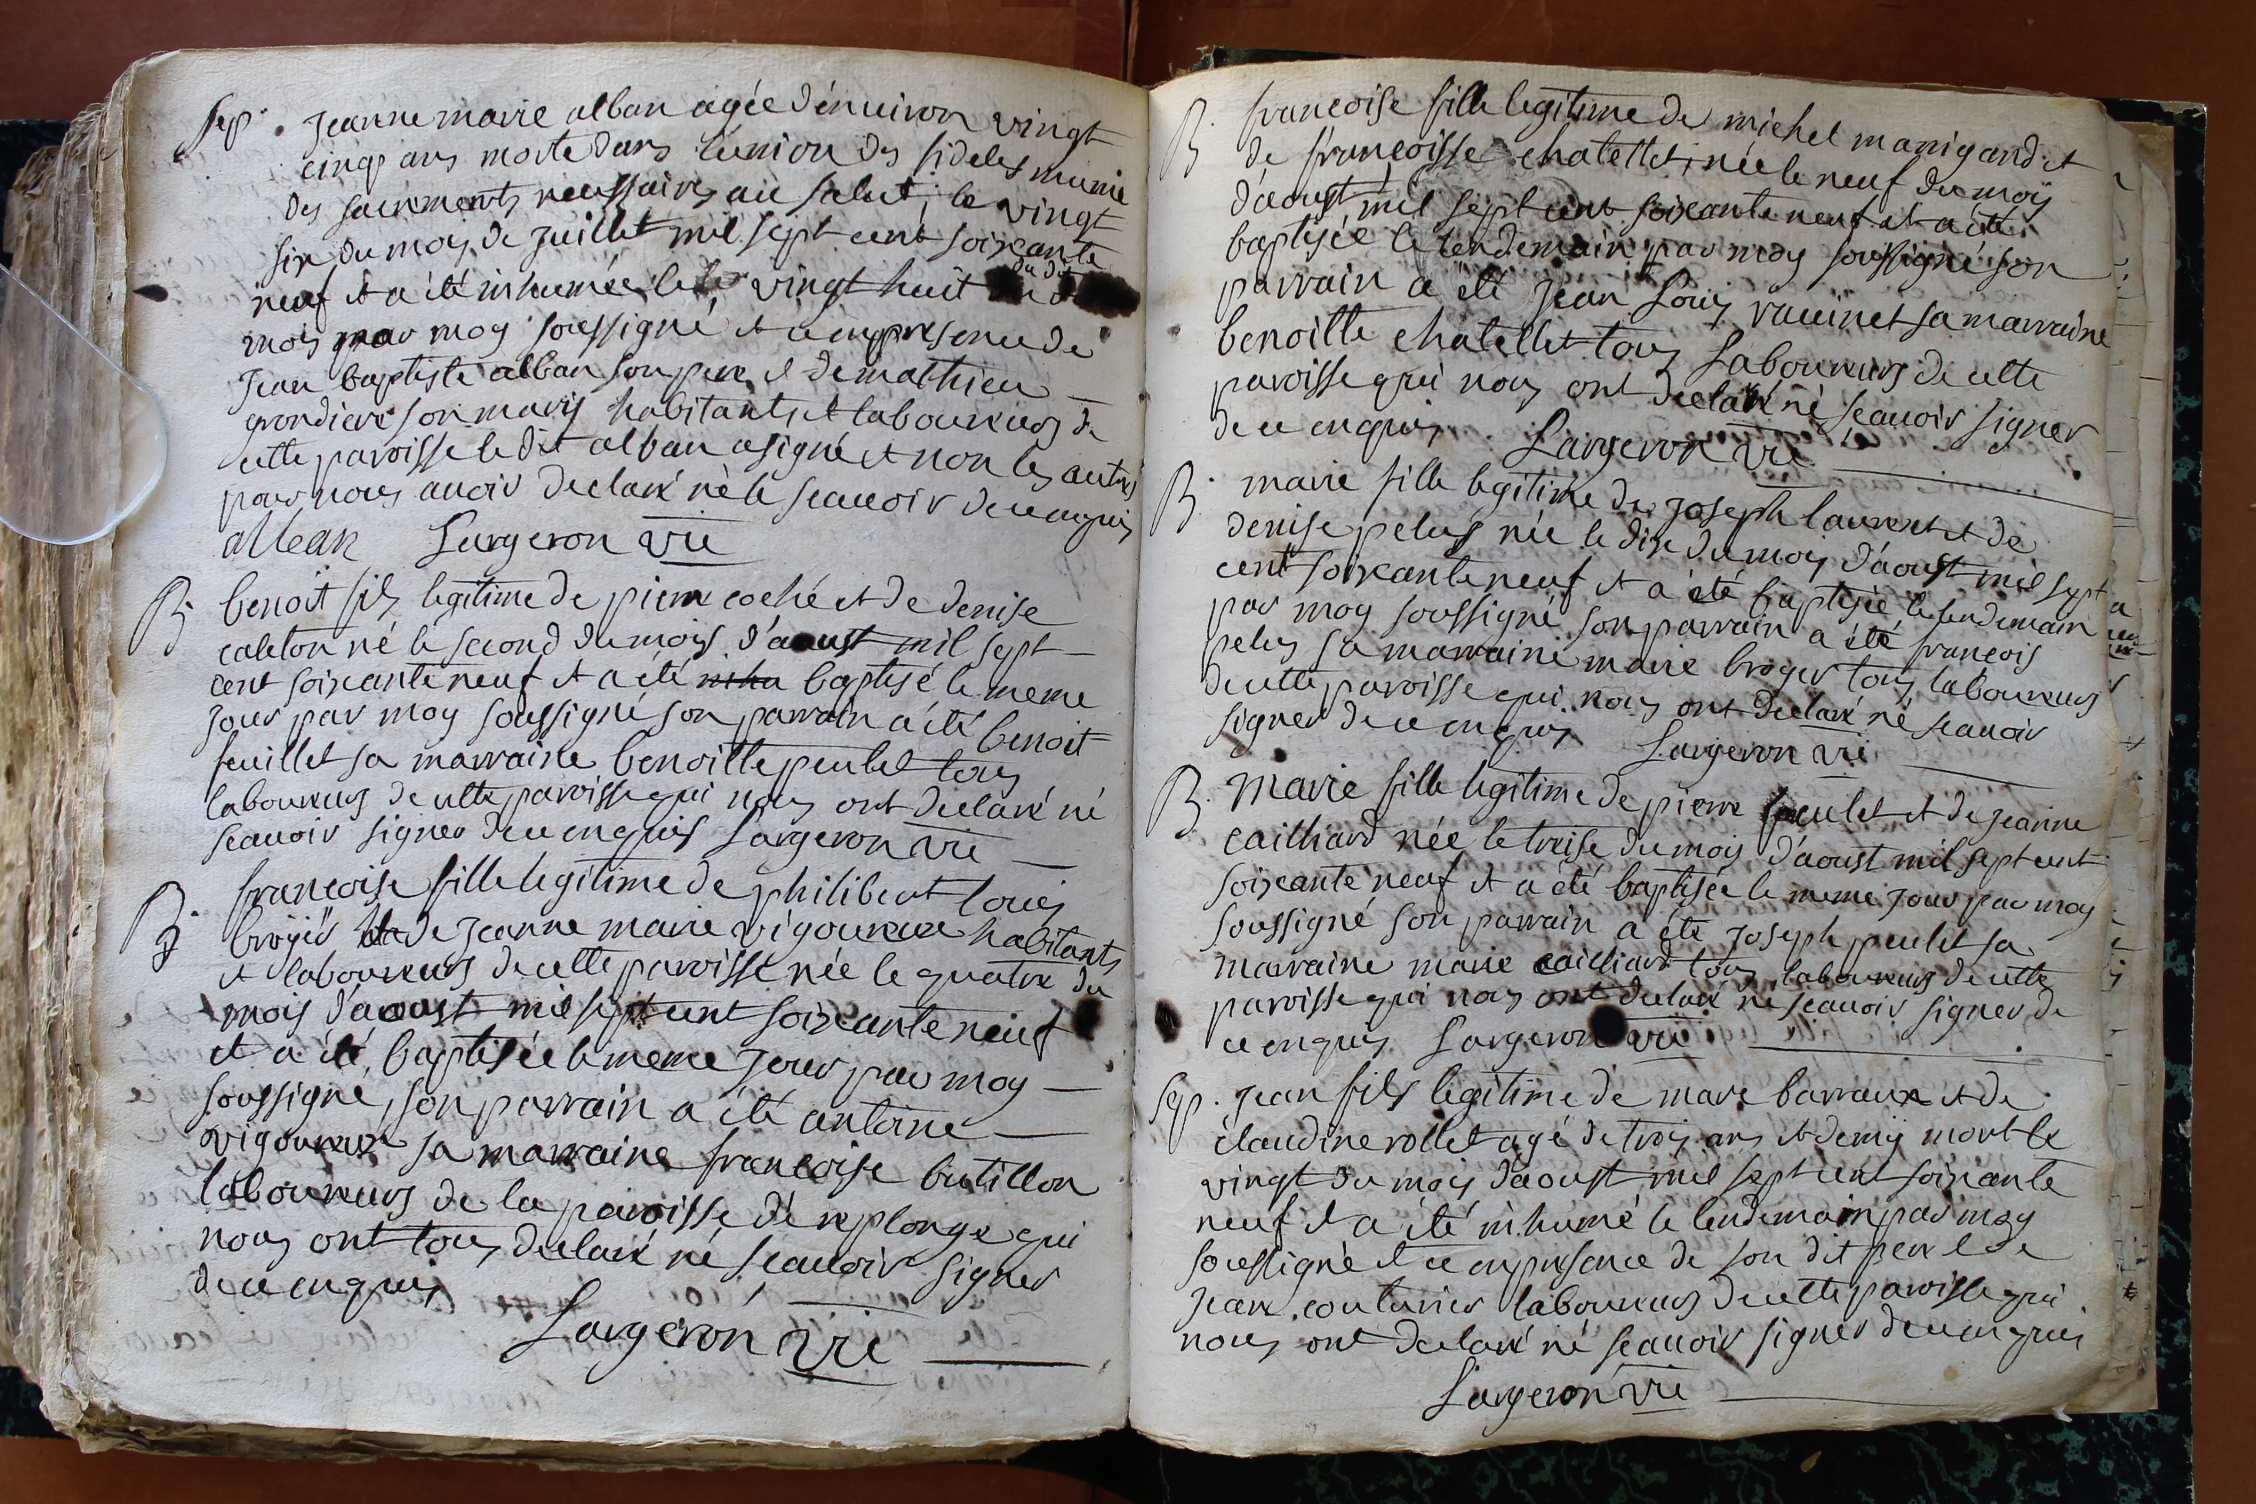 Sep. Jeanne marie alban agée d'énuiron vingt
cinq ans morte dans l'union des fideles munie
des sacrements necessaires au salut, le vingt
six du mois de juillet mil sept cent soixante
neuf et a été inhumée le vingt huit du dit
mois par moy soussigné et ce en presence de
Jean baptiste alban son pere et de mathieu
grondiere son marij habitants et laboureurs de
cette paroisse le dit alban a signé et non les autres
pour nous auoir declaré né le scauoir de ce enquis
alban Largeron vic
B. benoit fils legitime de pierre coché et de denise
caleton né le second du mois d'aoust mil sept
cent soixante neuf et a été inhu baptisé le meme
jour par moy soussigné son parrain a été benoit
feuillet sa marraine benoitte peulet tous
laboureurs de cette paroisse qui nous ont declaré né
scauoir signer de ce enquis Largeron vic
B. francoise fille legitime de philibert louis
broyer et de jeanne marie vigoureux habitants
et laboureurs de cette paroisse née le quatre du
mois d'aoust mil sept cent soixante neuf
et a été baptisée le meme jour par moy
soussigné, son parrain a été antoine
vigoureux sa marraine francoise butillon
laboureurs de la paroisse de replonge qui
nous ont tous declaré né scauoir signer
de ce enquis
Largeron vic
B. francoise fille legitime de michel manigand et
de francoisse chatellet, née le neuf du moÿ
d'aoust mil sept cent soixante neuf et a été
baptisée le lendemain par moy soussigné son
parrain a été jean Louis raccinet sa marraine
benoitte chatellet tous Laboureurs de cette
paroisse qui nous ont declaré né scauoir signer
de ce enquis Largeron vic
B. marie fille legitime de joseph laurent et de
denise pelus née le dix du mois d'aoust mil sept
cent soixante neuf et a été baptisée le lendemain
par moy soussigné son parrain a été francois
pelus sa marraine marie broyer tous laboureurs
de cette paroisse qui nous ont declaré né scauoir
signer de ce enquis Largeron vic
B. Marie fille legitime de pierre peulet et de jeanne
cailliard née le treise du mois d'aoust mil sept cent
soixante neuf et a été baptisée le meme jour par moy
soussigné son parrain a été joseph peulet sa
marraine marie cailliard tous laboureurs de cette
paroisse qui nous ont declaré né scauoir signer de
ce enquis Largeron vic
Sep. jean fils legitime de marc barraux et de
claudine rollet agé de trois ans et demij mort le
vingt du mois d'aoust mil sept cent soixante
neuf et a été inhumé le lendemain par moy
soussigné et ce en presence de son dit pere et de
jean couturier laboureurs de cette paroisse qui
nous ont declaré né scauoir signer de ce enquis
Largeron vic